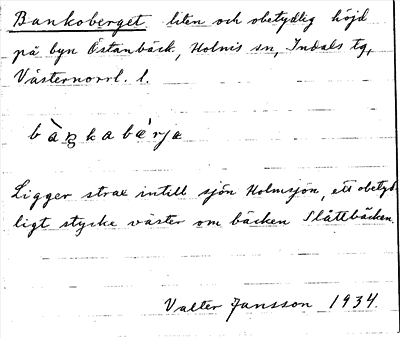 Bankoberget liten och obetydlig höjd
på byn Östanbäck, Holms sn, Indals tg,
Västernorrl. l.
bàŋkabærja
Ligger strax intill sjön Holmsjön, ett obetyd-
ligt stycke väster om bäcken Slåttbäcken.
Valter Jansson 1934.